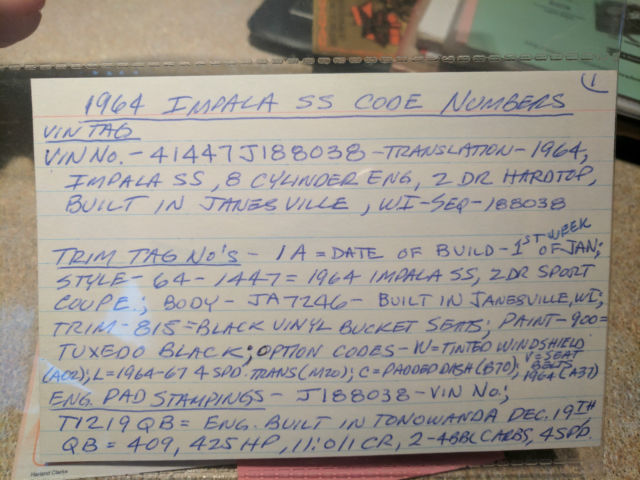 1
1964 IMPALA SS CODE NUMBERS
VIN TAG
VIN NO. - 41447J188038 - TRANSLATION - 1964,
IMPALA SS, 8 CYLINDER ENG, 2 DR HARDTOP,
BUILT IN JANESVILLE, WI - SEQ - 188038
TRIM TAG NO'S - 1A = DATE OF BUILD - 1ST WEEK OF JAN;
STYLE - 64 - 1447 = 1964 IMPALA SS, 2DR SPORT
COUPE.; BODY - JA7246 - BUILT IN JANESVILLE, WI;
TRIM - 815 = BLACK VINYL BUCKET SEATS; PAINT - 900 =
TUXEDO BLACK; OPTION CODES - W = TINTED WINDSHIELD
(A02); L = 1964-67 4 SPD. TRANS (M20); C = PADDED DASH (B70); V = SEAT BELTS 1964 (A37)
ENG. PAD STAMPINGS - J188038 - VIN NO.;
T1219QB = ENG. BUILT IN TONOWANDA DEC. 19TH
QB = 409, 425 HP, 11:0/1 CR, 2-4BBL CARBS, 4SPD.
Harland Clarke